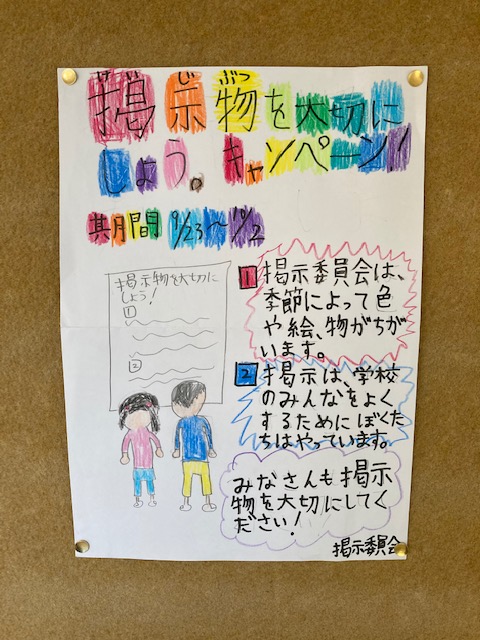 けい じ ぶつ
掲示物を大切に
しよう。キャンペーン!
其月間 9/23~10/2
掲示物を大切に
しよう!
1
2
1 掲示委員会は、
季節によって色
や絵、物がちが
います。
2 掲示は、学校
のみんなをよく
するためにぼくた
ちはやっています。
みなさんも掲示
物を大切にしてく
ださい!
掲示委員会